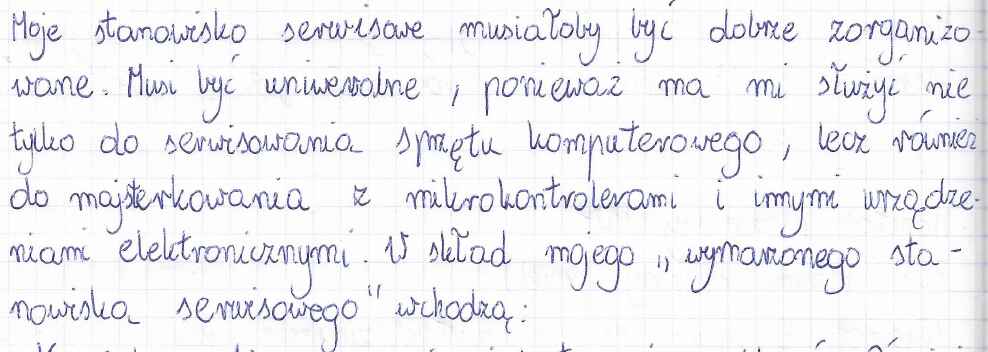 Moje stanowisko serwisowe musiałoby być dobrze zorganizo-
wane. Musi być uniwersalne, ponieważ ma mi służyć nie
tylko do serwisowania sprzętu komputerowego, lecz również
do majsterkowania z mikrokontrolerami i innymi urządze-
niami elektronicznymi. W skład mojego „wymarzonego sta-
nowiska serwisowego" wchodzą: